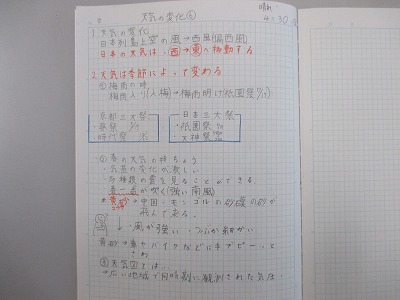 天気の変化④
晴れ
4:30
1.天気の変化
日本列島上空の風→西風(偏西風)
日本の天気は、西→東へ移動する
2.天気は季節によって変わる
①梅雨の時
梅雨入り(入梅)→梅雨明け(祇園祭7/17)
京都三大祭
・葵祭 5/15
・時代祭
日本三大祭
・祇園祭
・天神祭
②春の天気の特ちょう
・気温の変化が激しい
・各種類の雲を見ることができる
春一番が吹く(強い南風)
黄砂→中国・モンゴルの砂漠の砂が
飛んで来る。
↓・風が強い・つぶが細かい
黄砂→車やバイクなどに
③天気図では、
→広い地域で同時刻に観測された気圧、